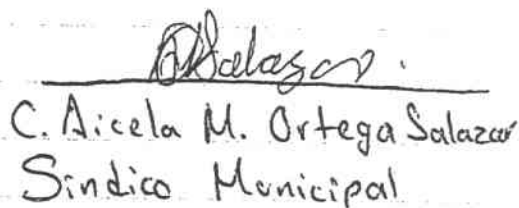 Salazar.
C. Aicela M. Ortega Salazar
Sindico Municipal